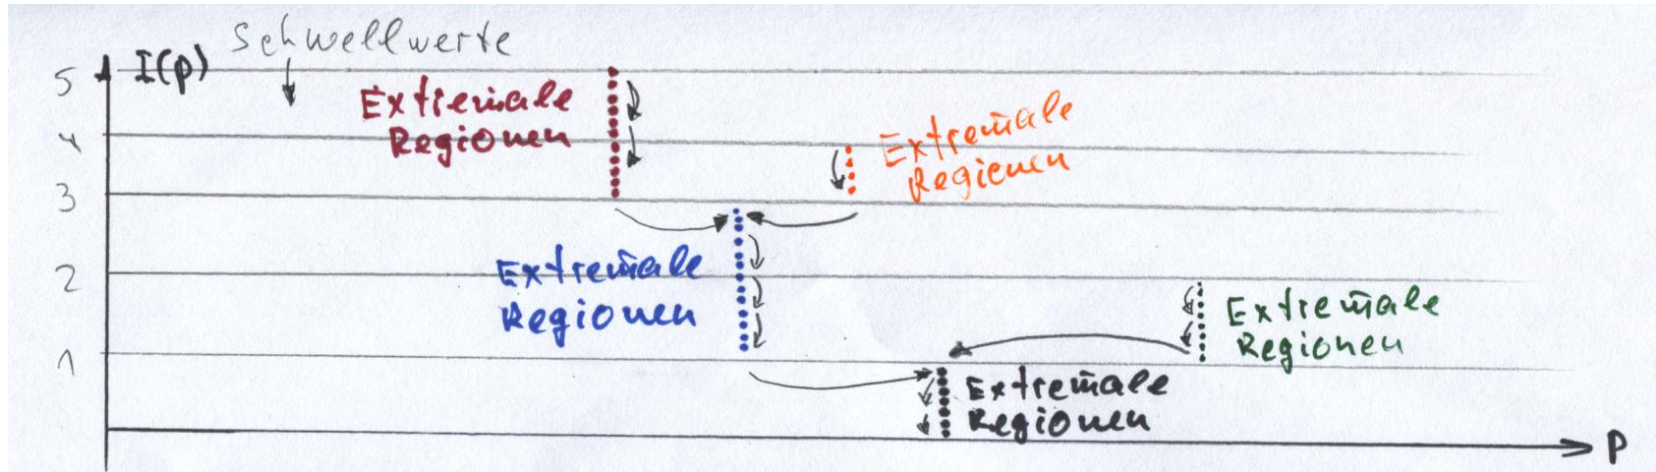 Schwellwerte
5
I(p)
Extremale
Regionen
4
Extremale
Regionen
3
Extremale
Regionen
2
Extremale
Regionen
1
Extremale
Regionen
P